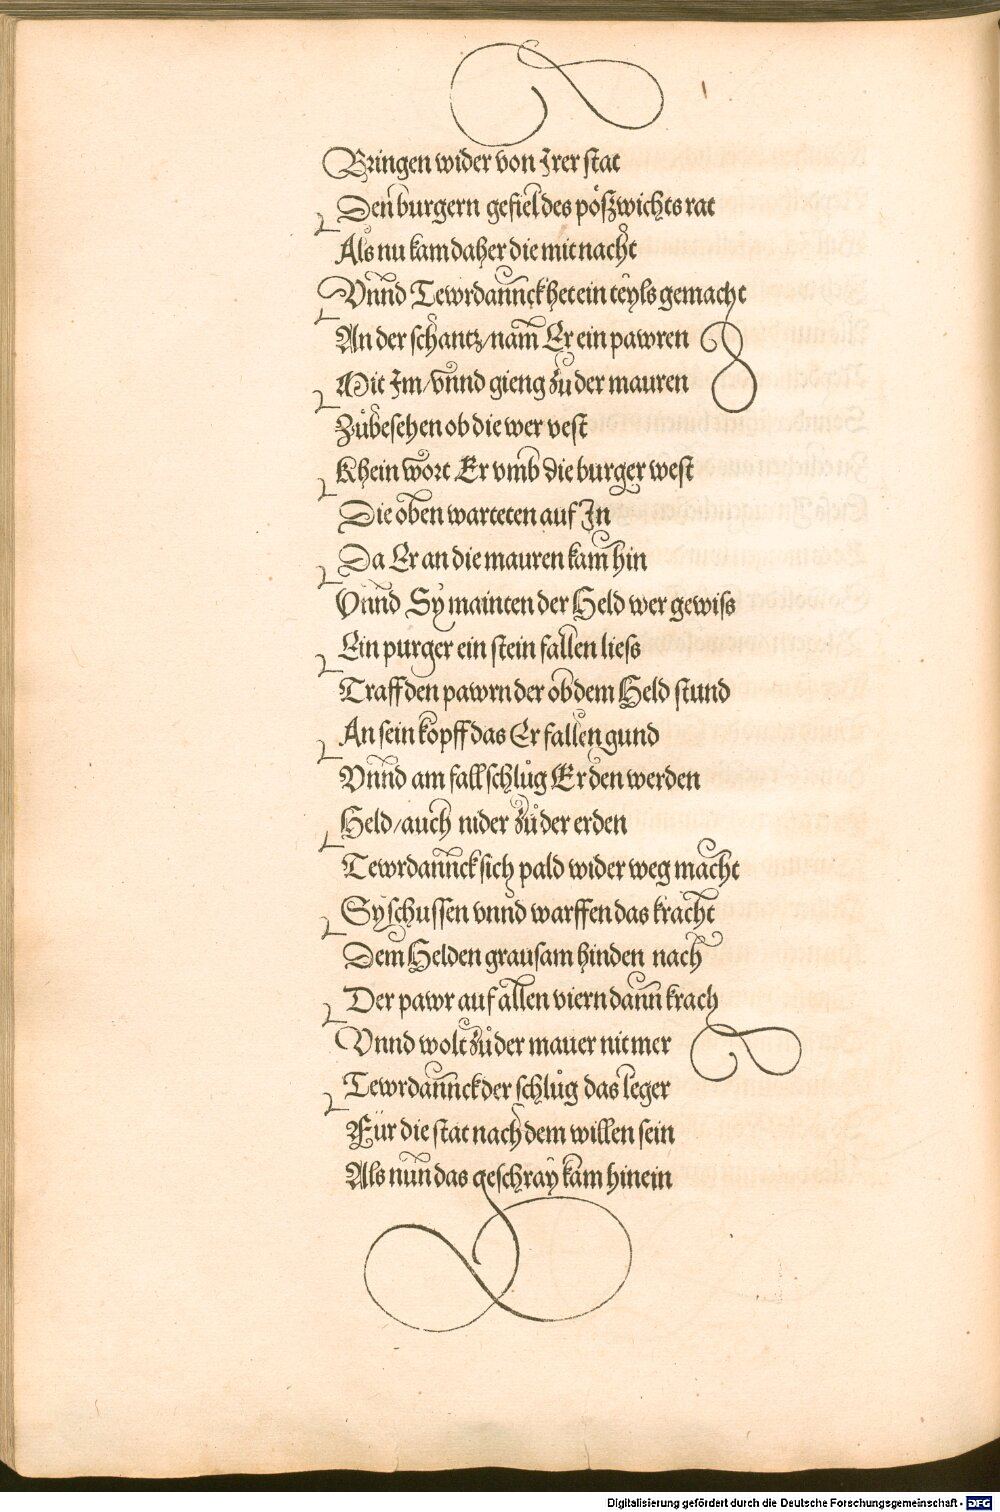 Bringen wider von Irer stat
Den burgern gefiel des pößzwichts rat
Als nu kam daher die mitnacht
Vnnd Tewrdannck het ein teyls gemacht
An der schantz/nam Er ein pawren
Mit Im/vnnd gieng zů der mauren
Zůbesehen ob die wer vest
Khein wort Er vmb die burger west
Die oben warteten auf In
Da Er an die mauren kam hin
Vnnd Sy mainten der Held wer gewiss
Ein purger ein stein fallen liess
Traff den pawrn der ob dem Held stund
An sein kopff das Er fallen gund
Vnnd am fall schlůg Er den werden
Held/auch nider zů der erden
Tewrdannck sich pald wider weg macht
Sy schussen vnnd warffen das kracht
Dem Helden grausam hinden nach
Der pawr auf allen viern dann krach
Vnnd wolt zů der mauer nit mer
Tewrdannck der schlůg das leger
Für die stat nach dem willen sein
Als nun das geschray kam hinein
Digitalisierung gefördert durch die Deutsche Forschungsgemeinschaft - DFG